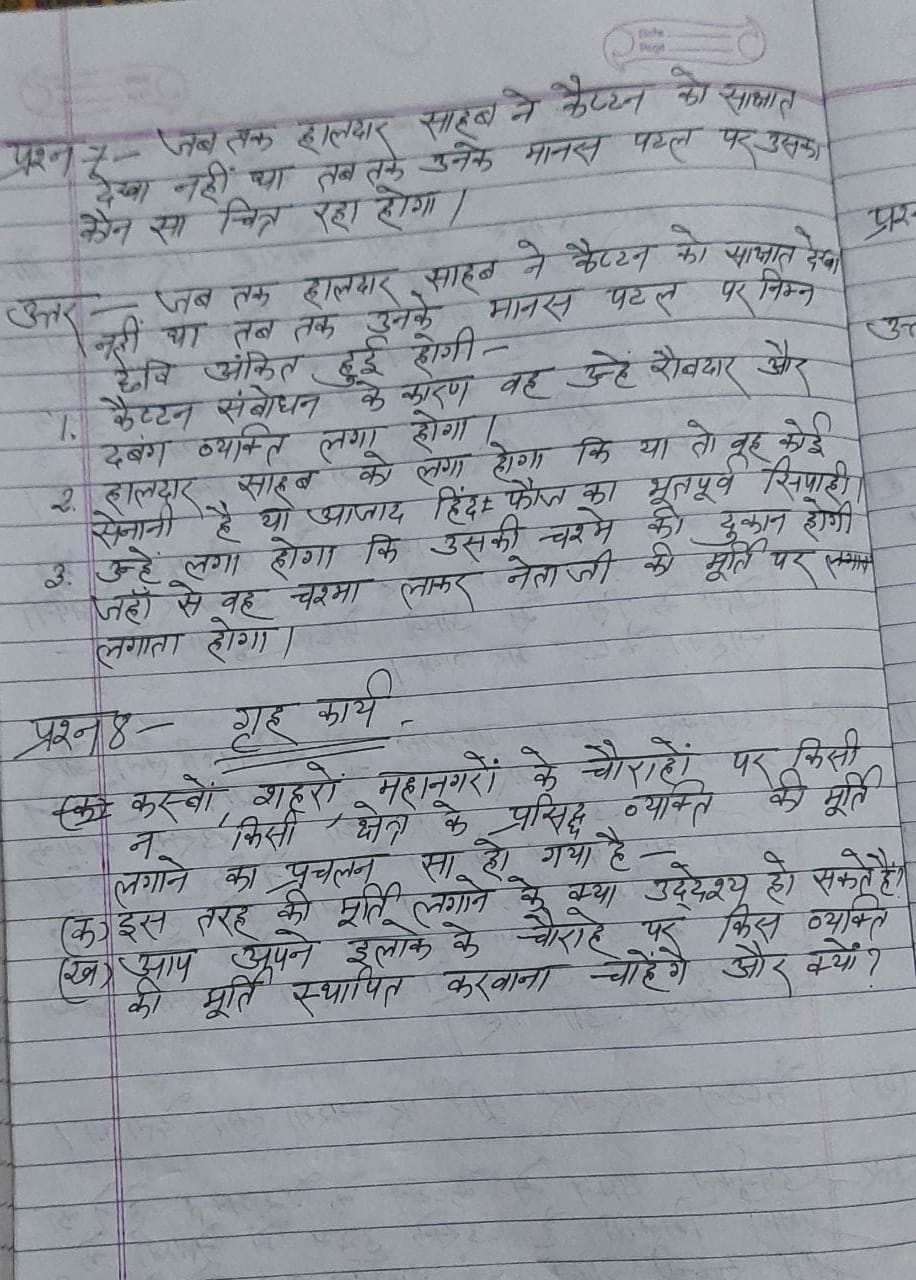 Date
Page
प्रश्न 7- जब तक हालदार साहब ने कैप्टन को साक्षात
देखा नहीं था तब तक उनके मानस पटल पर उसका
कौन सा चित्र रहा होगा।
उत्तर- जब तक हालदार साहब ने कैप्टन को साक्षात देखा
नहीं था तब तक उनके मानस पटल पर निम्न
छवि अंकित हुई होगी-
1. कैप्टन संबोधन के कारण वह उन्हें रौबदार और
दबंग व्यक्ति लगा होगा।
2. हालदार साहब को लगा होगा कि या तो वह कोई
सेनानी है या आजाद हिंद फौज का भूतपूर्व सिपाही।
3. उन्हें लगा होगा कि उसकी चश्मे की दुकान होगी
जहाँ से वह चश्मा लाकर नेताजी की मूर्ति पर
लगाता होगा।
प्रश्न 8- गृह कार्य-
(क) कस्बों, शहरों, महानगरों के चौराहों पर किसी
न किसी क्षेत्र के प्रसिद्ध व्यक्ति की मूर्ति
लगाने का प्रचलन सा हो गया है-
(क) इस तरह की मूर्ति लगाने के क्या उद्देश्य हो सकते हैं?
(ख) आप अपने इलाके के चौराहे पर किस व्यक्ति
की मूर्ति स्थापित करवाना चाहेंगे और क्यों?